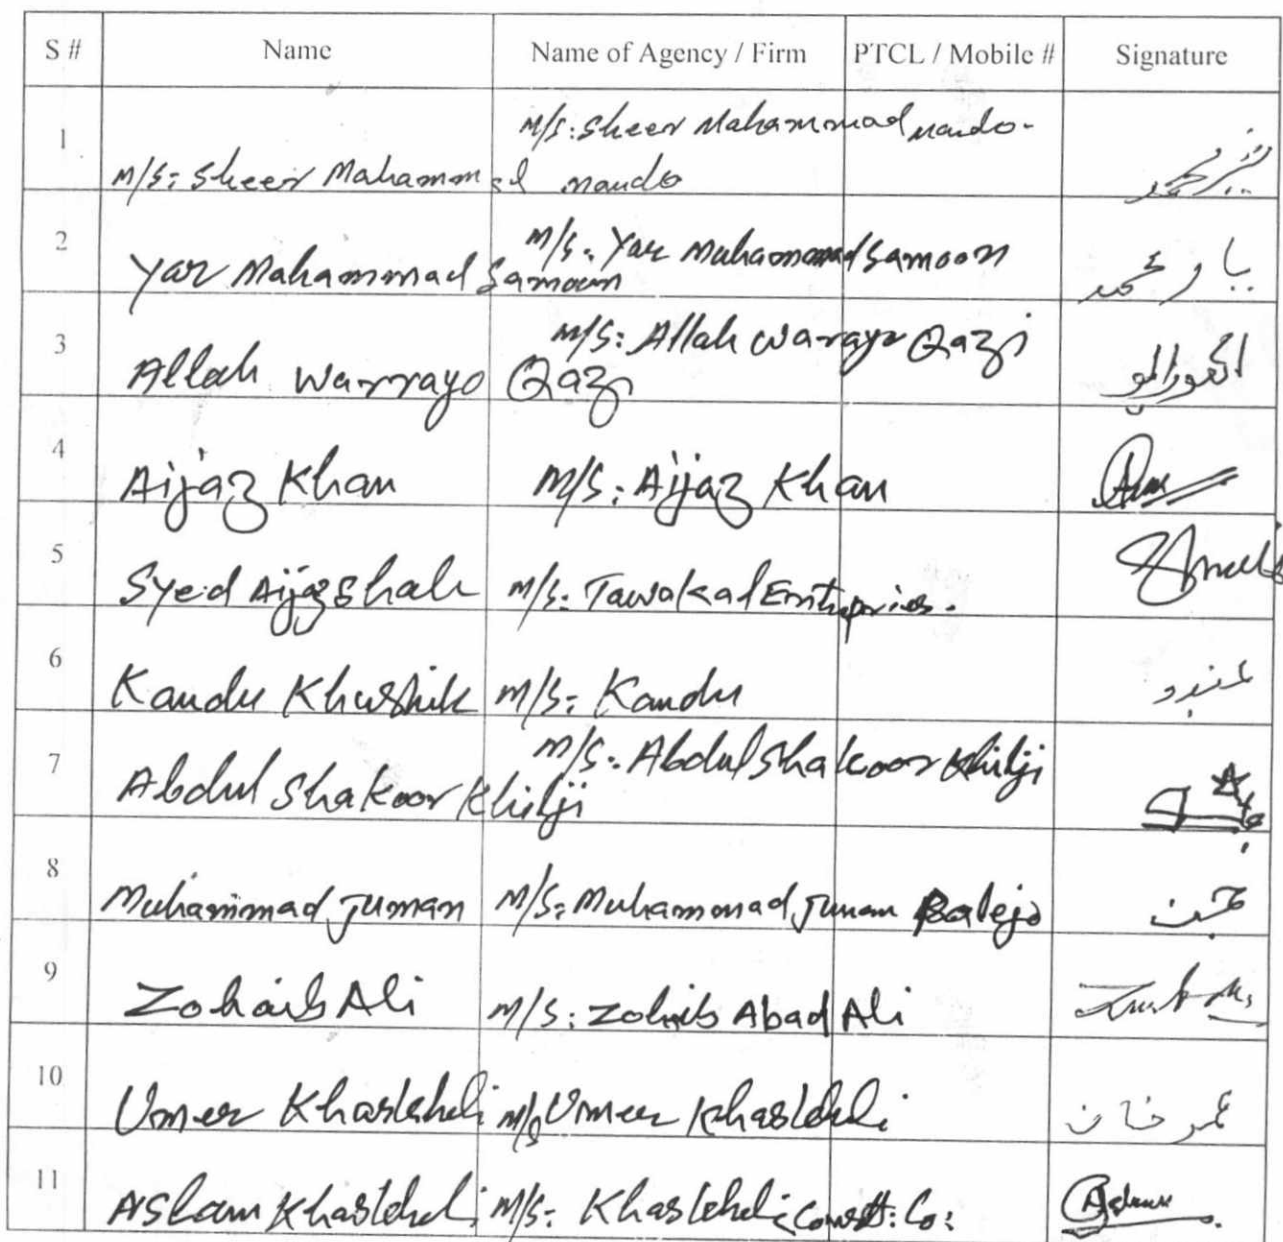 S # Name Name of Agency / Firm PTCL / Mobile # Signature
1 M/S: Sheer Mahammad nando M/S: Sheer Mahammad nando-
2 Yar Mahammad Samoon M/S: Yar Muhammad Samoon يار محمد
3 Allah Warrayo Qazi M/S: Allah Warayo Qazi
4 Aijaz Khan M/S: Aijaz Khan
5 Syed Aijaz Shah M/S: Tawakal Enterprises.
6 Kandu Khushik M/S: Kandu
7 Abdul Shakoor Khilji M/S: Abdul Shakoor Khilji
8 Muhammad Juman M/S: Muhammad Juman Balejo
9 Zohaib Ali M/S: Zohib Abad Ali
10 Umer Khaskheli M/S Umer Khaskheli عمر خان
11 Aslam Khaskheli M/S: Khaskheli Constt: Co: